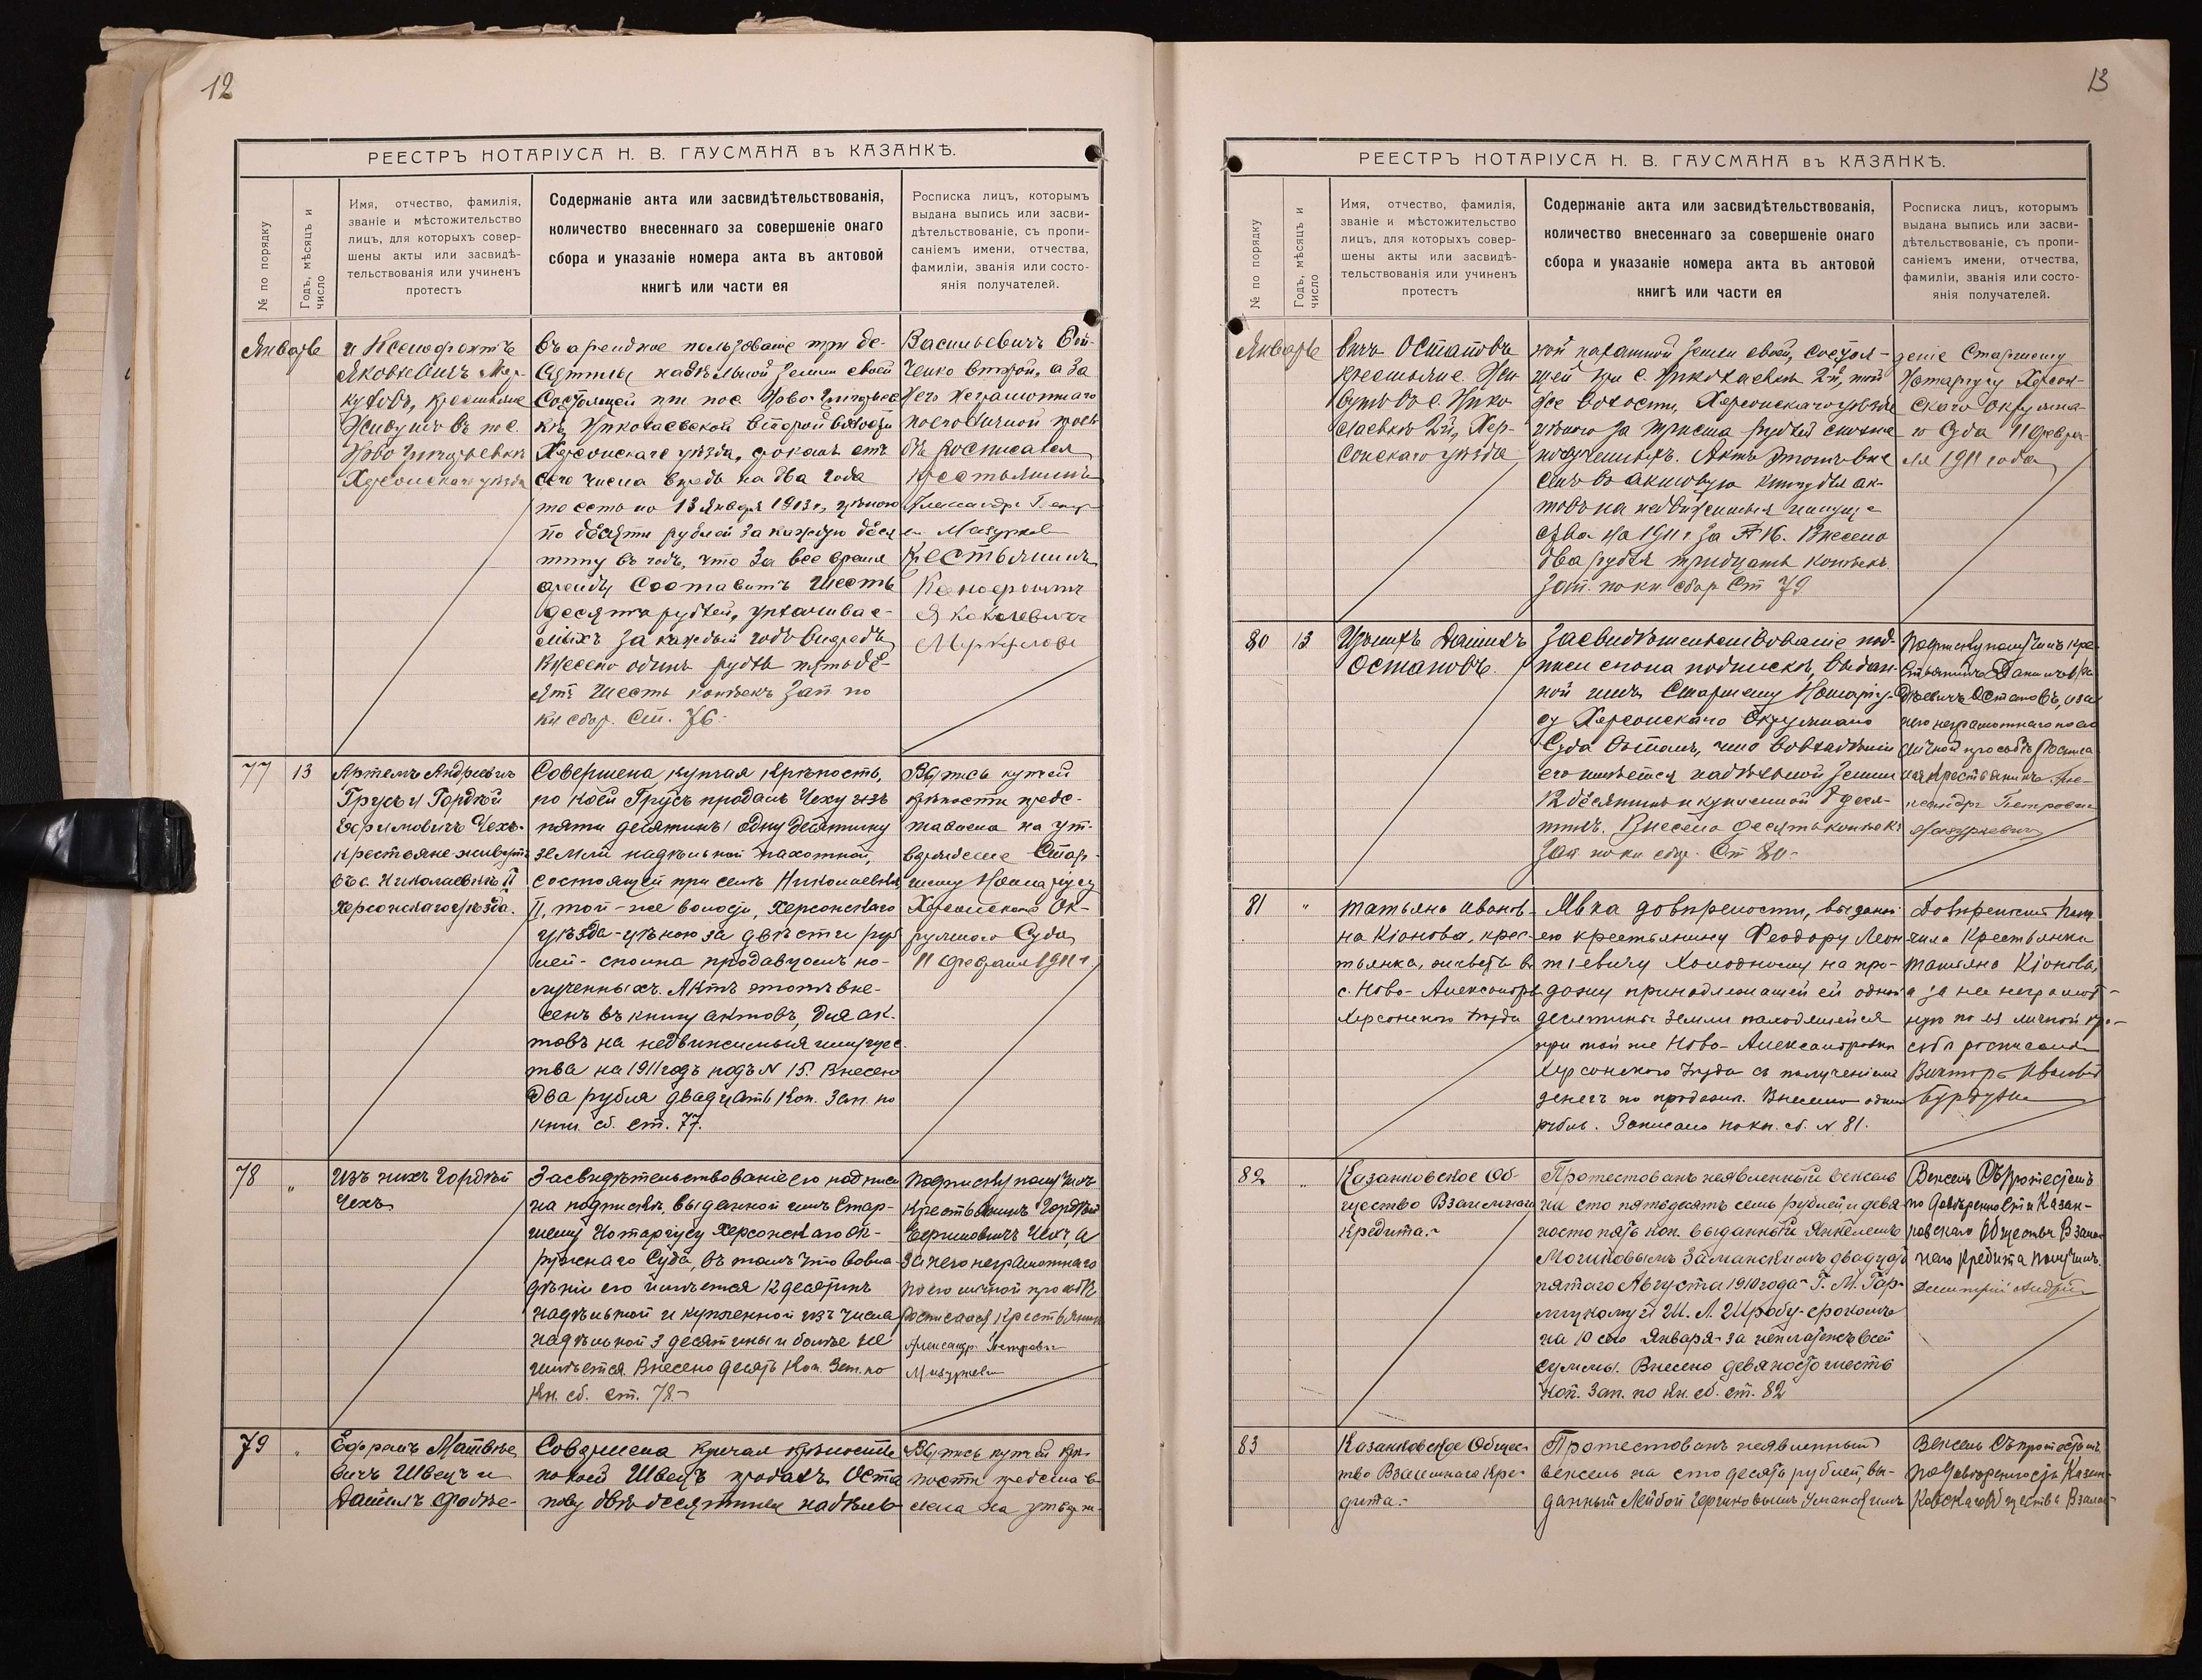 12
РЕЕСТРЪ НОТАРІУСА Н. В. ГАУСМАНА въ КАЗАНКѢ.
№ по порядку
Годъ, мѣсяцъ и
число
Имя, отчество, фамилія,
званіе и мѣстожительство
лицъ, для которыхъ совер-
шены акты или засвидѣ-
тельствованія или учиненъ
протестъ
Содержаніе акта или засвидѣтельствованія,
количество внесеннаго за совершеніе онаго
сбора и указаніе номера акта въ актовой
книгѣ или части ея
Росписка лицъ, которымъ
выдана выпись или засви-
дѣтельствованіе, съ пропи-
саніемъ имени, отчества,
фамиліи, званія или состо-
янія получателей.
Январь
и Ксенофонтъ
Яковлевичъ
крестьяне
живущіе въ пос.
Ново
Херсонскаго уѣзда
въ арендное пользованіе три де-
сятины надѣльной земли своей
состоящей при пос. Ново
кѣ Николаевской второй волости
Херсонскаго уѣзда, срокомъ отъ
сего числа впредь на два года
то есть по 13 Января 1913 г., цѣною
по десяти рублей за каждую деся
тину въ годъ, что за все время
аренды составитъ шесть
десятъ рублей, уплачивае-
мыхъ за каждый годъ впередъ
Внесено одинъ рубль пятьде-
сятъ шесть копѣекъ Зап по
кн сбор. Ст. 76.
Васильевичъ
ченко второй, а за
него неграмотнаго
по его личной прось
бѣ росписался
крестьянинъ
Александръ
Крестьянинъ
Ксенофонтъ
Яковлевичъ
77
13
Артемъ Андреевичъ
Грусъ и Гордѣй
Ефимовичъ Чехъ-
крестьяне живущіе
въ с. Николаевкѣ II
Херсонскаго уѣзда.
Совершена купчая крѣпость,
по коей Грусъ продалъ Чеху изъ
пяти десятинъ одну десятину
земли надѣльной пахотной,
состоящей при селѣ Николаевкѣ
II, той-же волости, Херсонскаго
уѣзда-цѣною за двѣсти руб
лей-сполна продавцомъ по-
лученныхъ. Актъ этотъ вне-
сенъ въ книгу актовъ, для ак-
товъ на недвижимыя имущес-
тва на 1911 годъ подъ N 15. Внесено
Два рубля двадцать Коп. Зап. по
книг. сб. ст. 77.
Выпись купчей
крѣпости предс-
тавлена на ут-
вержденіе Стар-
шему Нотаріусу
Херсонскаго Ок-
ружного Суда
11 февраля 1911 г.
78
"
Изъ нихъ Гордѣй
Чехъ
Засвидѣтельствованіе его подписи
на подпискѣ, выданной имъ Стар-
шему Нотаріусу Херсонскаго Ок-
ружнаго Суда, въ томъ что во вла-
дѣніи его имѣется 12 десятинъ
надѣльной и купленной изъ числа
надѣльной 3 десятины и болѣе не
имѣется. Внесено десять Коп. Зап. по
Кн. сб. ст. 78.
Подписку получилъ
Крестьянинъ Гордѣй
Ефимовичъ Чехъ, а
за него неграмотнаго
по его личной просьбѣ
росписался Крестьянинъ
Александръ Петровъ
79
"
Ефремъ Матвѣе
вичъ Швецъ и
Даніилъ
Совершена купчая крѣпость
по коей Швецъ продалъ Оста
пову двѣ десятины надѣль
Выпись купчей крѣ-
пости представ-
лена на утверж-
13
РЕЕСТРЪ НОТАРІУСА Н. В. ГАУСМАНА въ КАЗАНКѢ.
№ по порядку
Годъ, мѣсяцъ и
число
Имя, отчество, фамилія,
званіе и мѣстожительство
лицъ, для которыхъ совер-
шены акты или засвидѣ-
тельствованія или учиненъ
протестъ
Содержаніе акта или засвидѣтельствованія,
количество внесеннаго за совершеніе онаго
сбора и указаніе номера акта въ актовой
книгѣ или части ея
Росписка лицъ, которымъ
выдана выпись или засви-
дѣтельствованіе, съ пропи-
саніемъ имени, отчества,
фамиліи, званія или состо-
янія получателей.
Январь
вичъ Остаповъ
крестьяне. Жи
вутъ въ с. Нико
лаевкѣ 2й, Хер-
сонскаго уѣзда
ной пахатной земли своей, состоя-
щей при с. Николаевкѣ 2й, той
же волости, Херсонскаго уѣзда
цѣною за триста рублей сполна
полученныхъ. Актъ этотъ вне
сенъ въ актовую книгу для ак-
товъ на недвижимыя имуще
ства на 1911 г. за № 16. Внесено
два рубля тридцать копѣекъ.
Зап. по кн сбор Ст 79
деніе Старшему
Нотаріусу Херсон-
скаго Окружна-
го Суда 11 Февра-
ля 1911 года
80
13
Изъ нихъ Даніилъ
Остаповъ.
Засвидѣтельствованіе под-
писи его на подпискѣ, выдан-
ной имъ Старшему Нотаріу-
су Херсонскаго Окружнаго
Суда въ томъ, что во владѣніи
его имѣется надѣльной земли
12 десятинъ и купленной 8 деся-
тинъ. Внесено десять копѣекъ
Зап по кн сбор. Ст 80-
Подписку получилъ кре-
стьянинъ Даніилъ
Остаповъ, а за
него неграмотнаго по его
личной просьбѣ росписа
лся Крестьянинъ Але-
ксандръ Петровичъ
81
"
Татьяна Иванов-
на Кіонова, крес-
тьянка, живетъ въ
с. Ново-Александровкѣ
Херсонскаго уѣзда
Явка довѣрености, выданной
ею крестьянину Феодору Леон
тіевичу Холодному на про-
дажу принадлежащей ей одной
десятины земли находящейся
при той же Ново-Александровкѣ
Херсонскаго уѣзда съ полученіемъ
денегъ по продажи. Внесено одинъ
рубль. Записано по кн. сб. N 81.
Довѣренность полу-
чила Крестьянка
Татьяна Кіонова,
а за нее неграмот-
ную по ея личной про-
сьбѣ росписался
Викторъ Ивановъ
82
"
Казанковское Об-
щество Взаимнаго
Кредита.
Протестованъ неявленный вексель
на сто пятьдесятъ семь рублей и девя
носто пять коп. выданный Янкелемъ
двадцать
пятаго Августа 1910 года Г. М. Гор-
лицкому и Ш. Л. срокомъ
на 10 ое Января за неплатежъ всей
суммы. Внесено девяносто шесть
Коп. Зап. по Кн. сб. ст. 82
Вексель съ протестомъ
по довѣренности Казан-
ковскаго Общества Взаим
наго Кредита получилъ
Дмитрій
83
Казанковское Общес-
тво Взаимнаго Кре-
дита.
Протестованъ неявленный
вексель на сто десять рублей, вы-
данный Лейбой Уманскимъ
Вексель съ протестомъ
по довѣренность Казан-
ковскаго Общества Взаим-